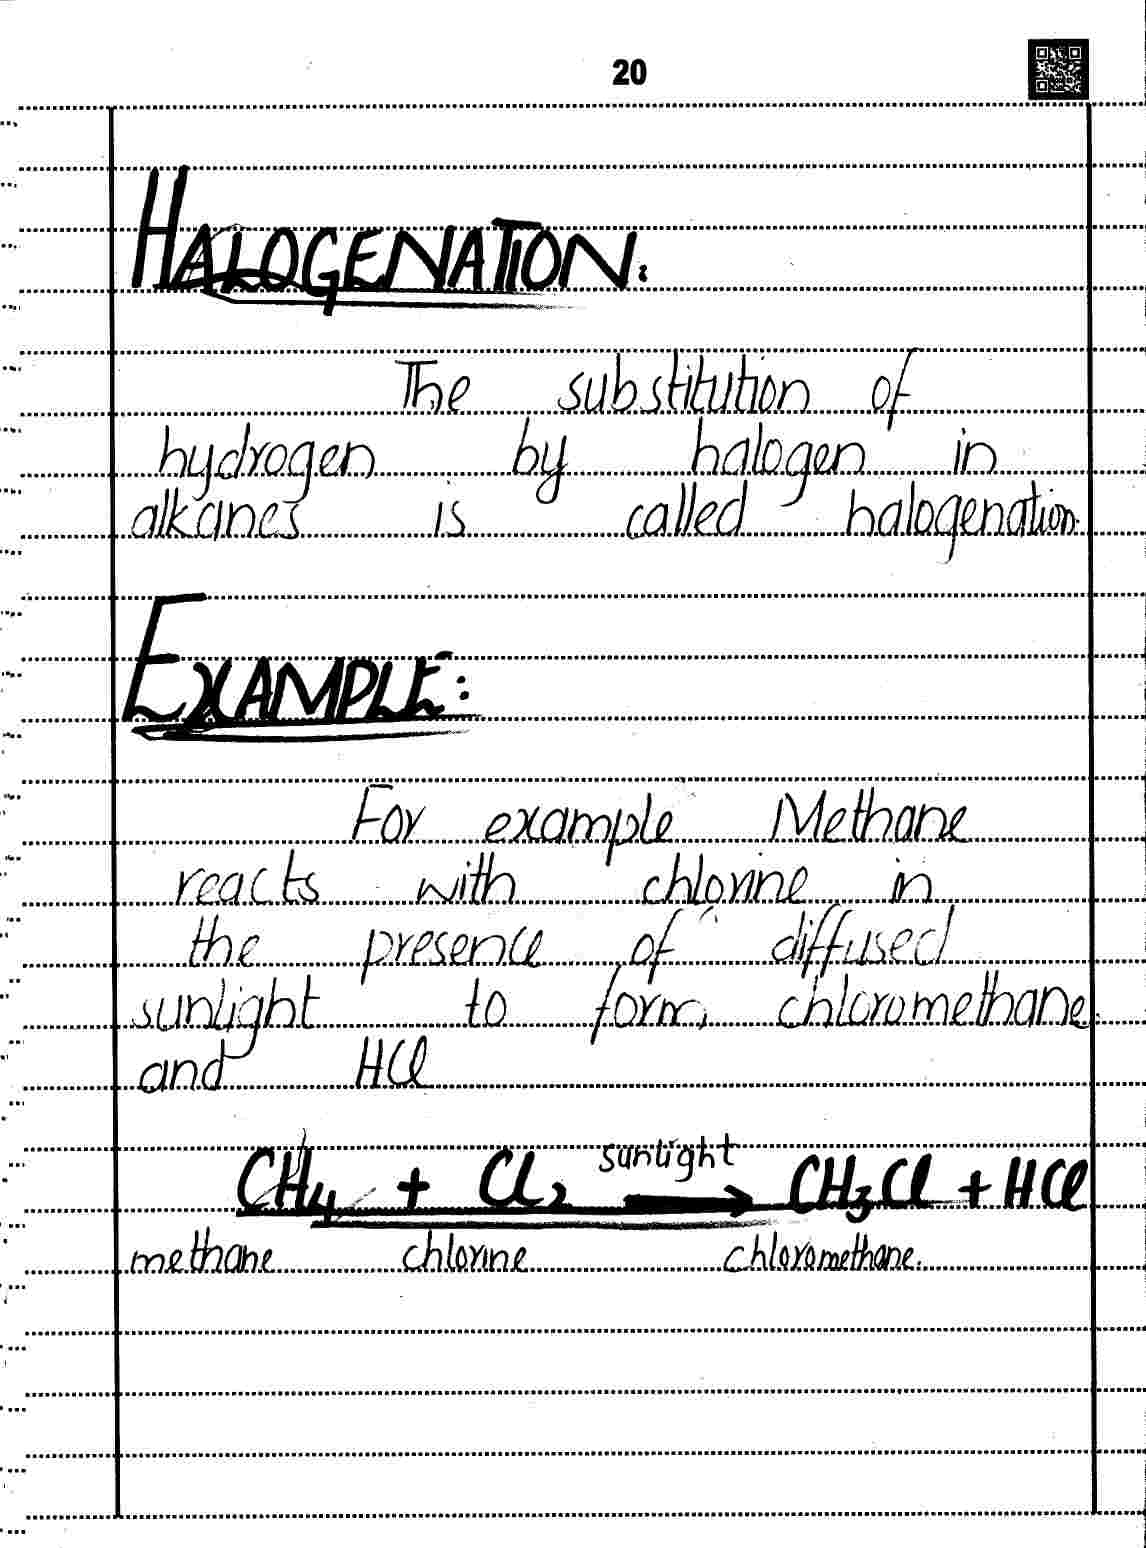 20
HALOGENATION:
The substitution of
hydrogen by halogen in
alkanes is called halogenation.
EXAMPLE:
For example Methane
reacts with chlorine in
the presence of diffused
sunlight to form, chloromethane
and HCl
CH₄ + Cl₂ sunlight → CH₃Cl + HCl
methane chlorine chloromethane.